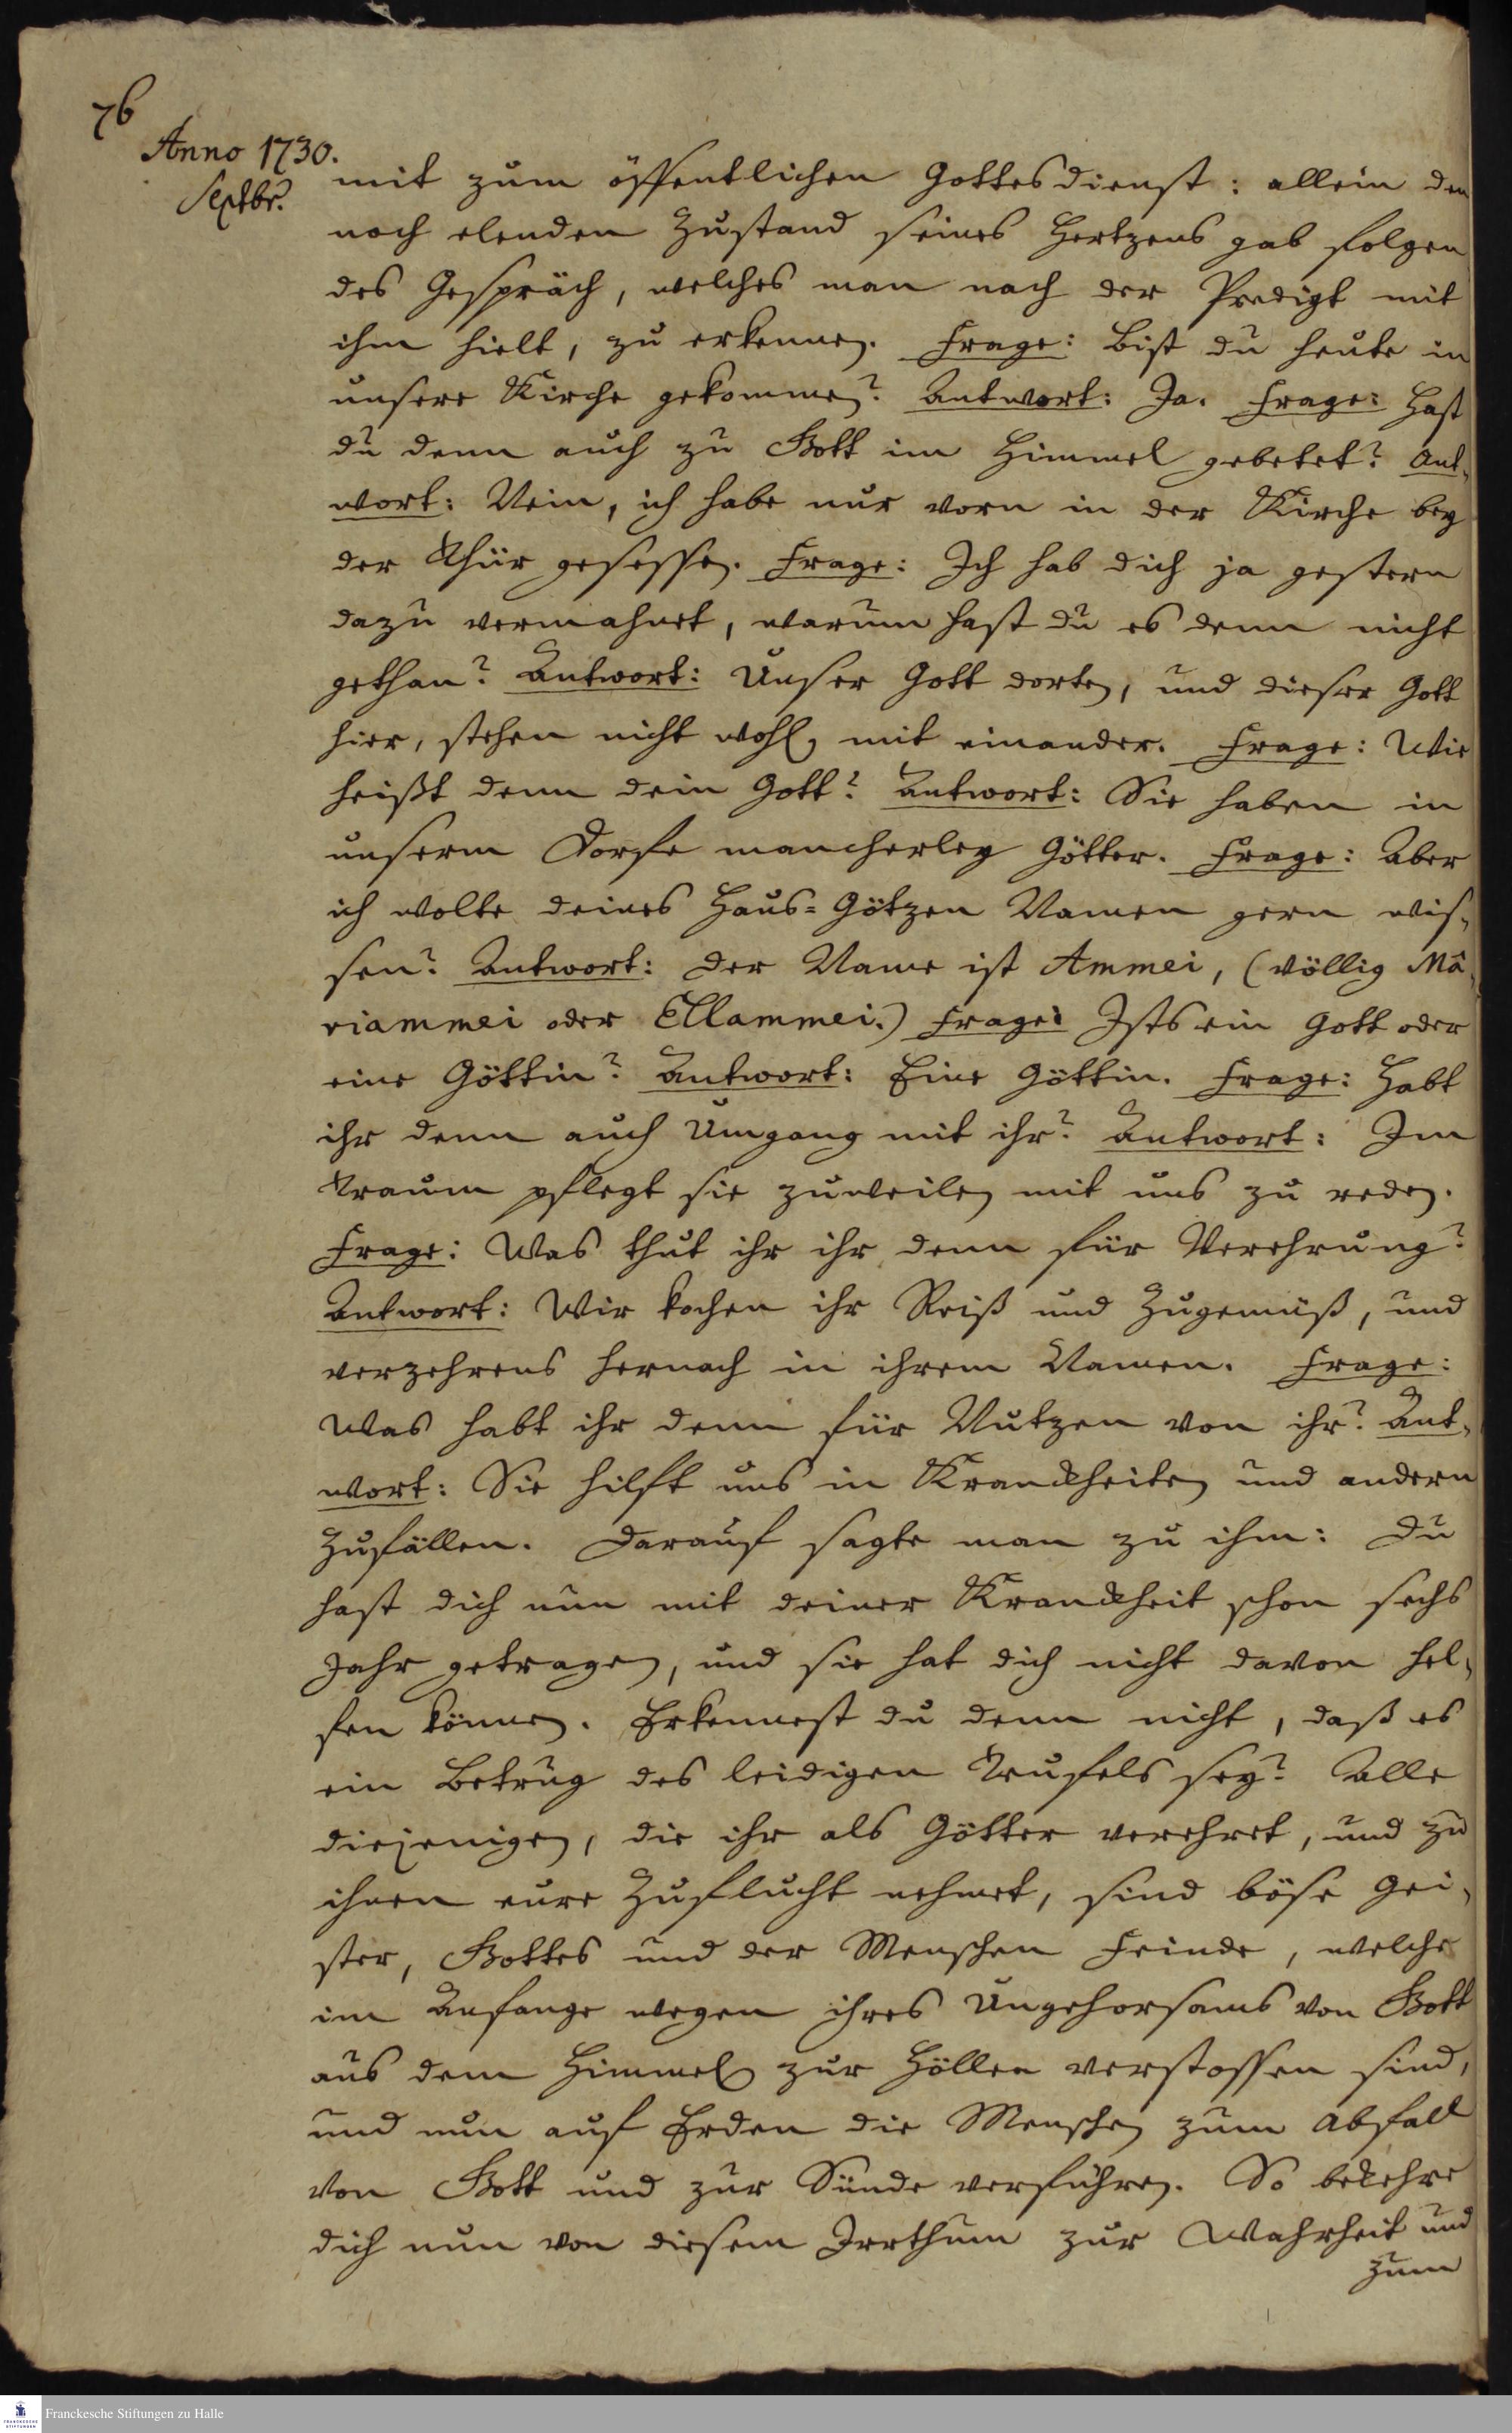 76
Anno 1730.
Septbr.
mit zum öffentlichen Gottesdienst: allein den
noch elenden Zustand seines Hertzens gab folgen
des Gespräch, welches man nach der Predigt mit
ihm hielt, zu erkennen. Frage: Bist du heute in
unsere Kirche gekommen? Antwort: Ja. Frage: Hast
du denn auch zu Gott im Himmel gebetet? Ant-
wort: Nein, ich habe nur vorn in der Kirche bey
der Thür gesessen. Frage: Ich hab dich ja gestern
dazu vermahnet, warum hast du es denn nicht
gethan? Antwort: Unser Gott dorten, und dieser Gott
hier, stehen nicht wohl mit einander. Frage: Wie
heißt denn dein Gott? Antwort: Sie haben in
unserm Dorfe mancherley Götter. Frage: Aber
ich wolte deines Haus-Götzen Namen gern wis-
sen? Antwort: Der Name ist Ammei, (völlig Mâ-
riammei oder Ellammei.) Frage: Ists ein Gott oder
eine Göttin? Antwort: Eine Göttin. Frage: Habt
ihr denn auch Umgang mit ihr? Antwort: Im
Traum pflegt sie zuweilen mit uns zu reden.
Frage: Was thut ihr ihr denn für Verehrung?
Antwort: Wir kochen ihr Reiß und Zugemüß, und
verzehrens hernach in ihrem Namen. Frage:
Was habt ihr denn für Nutzen von ihr? Ant-
wort: Sie hilft uns in Kranckheiten und andern
Zufällen. Darauf sagte man zu ihm: Du
hast dich nun mit deiner Kranckheit schon sechs
Jahr getragen, und sie hat dich nicht davon hel-
fen können. Erkennest du denn nicht, daß es
ein Betrug des leidigen Teufels sey? Alle
diejenigen, die ihr als Götter verehret, und zu
ihnen eure Zuflucht nehmet, sind böse Gei-
ster, Gottes und der Menschen Feinde, welche
im Anfange wegen ihres Ungehorsams von Gott
aus dem Himmel zur Höllen verstossen sind,
und nun auf Erden die Menschen zum Abfall
von Gott und zur Sünde verführen. So bekehre
dich nun von diesem Irrthum zur Wahrheit und
zum
Franckesche Stiftungen zu Halle